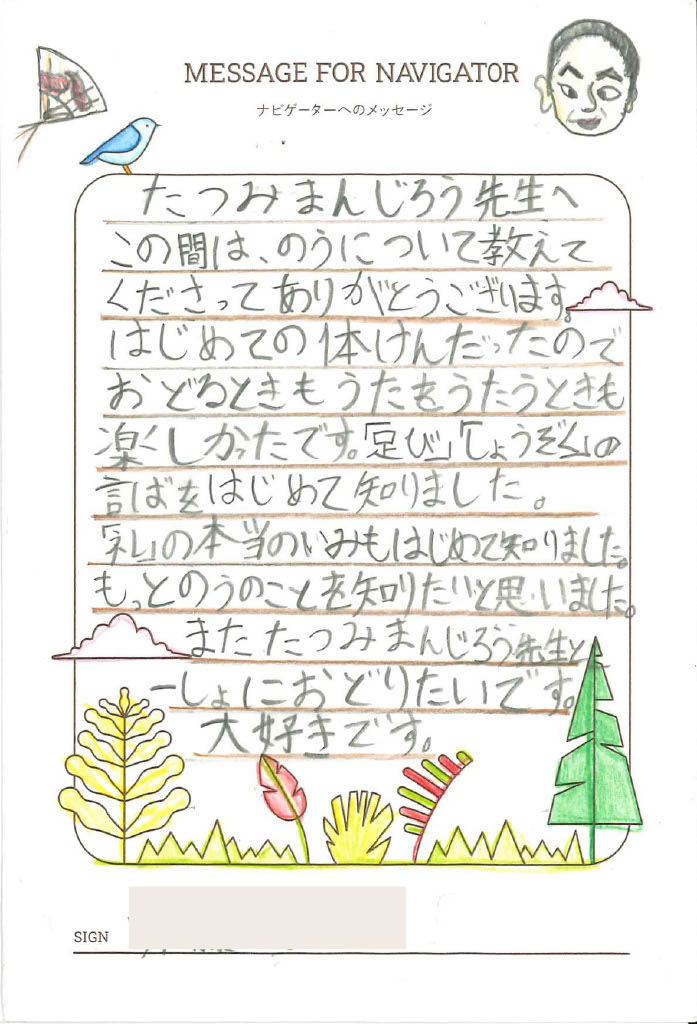 MESSAGE FOR NAVIGATOR
ナビゲーターへのメッセージ
たつみまんじろう先生へ
この間は、のうについて教えて
くださってありがとうございます。
はじめての体けんだったので
おどるときもうたをうたうときも
楽しかったです。「足び」「しょうぞく」の
言ばをはじめて知りました。
「礼」の本当のいみもはじめて知りました。
もっとのうのことを知りたいと思いました。
またたつみまんじろう先生と
一しょにおどりたいです。
大好きです。
SIGN